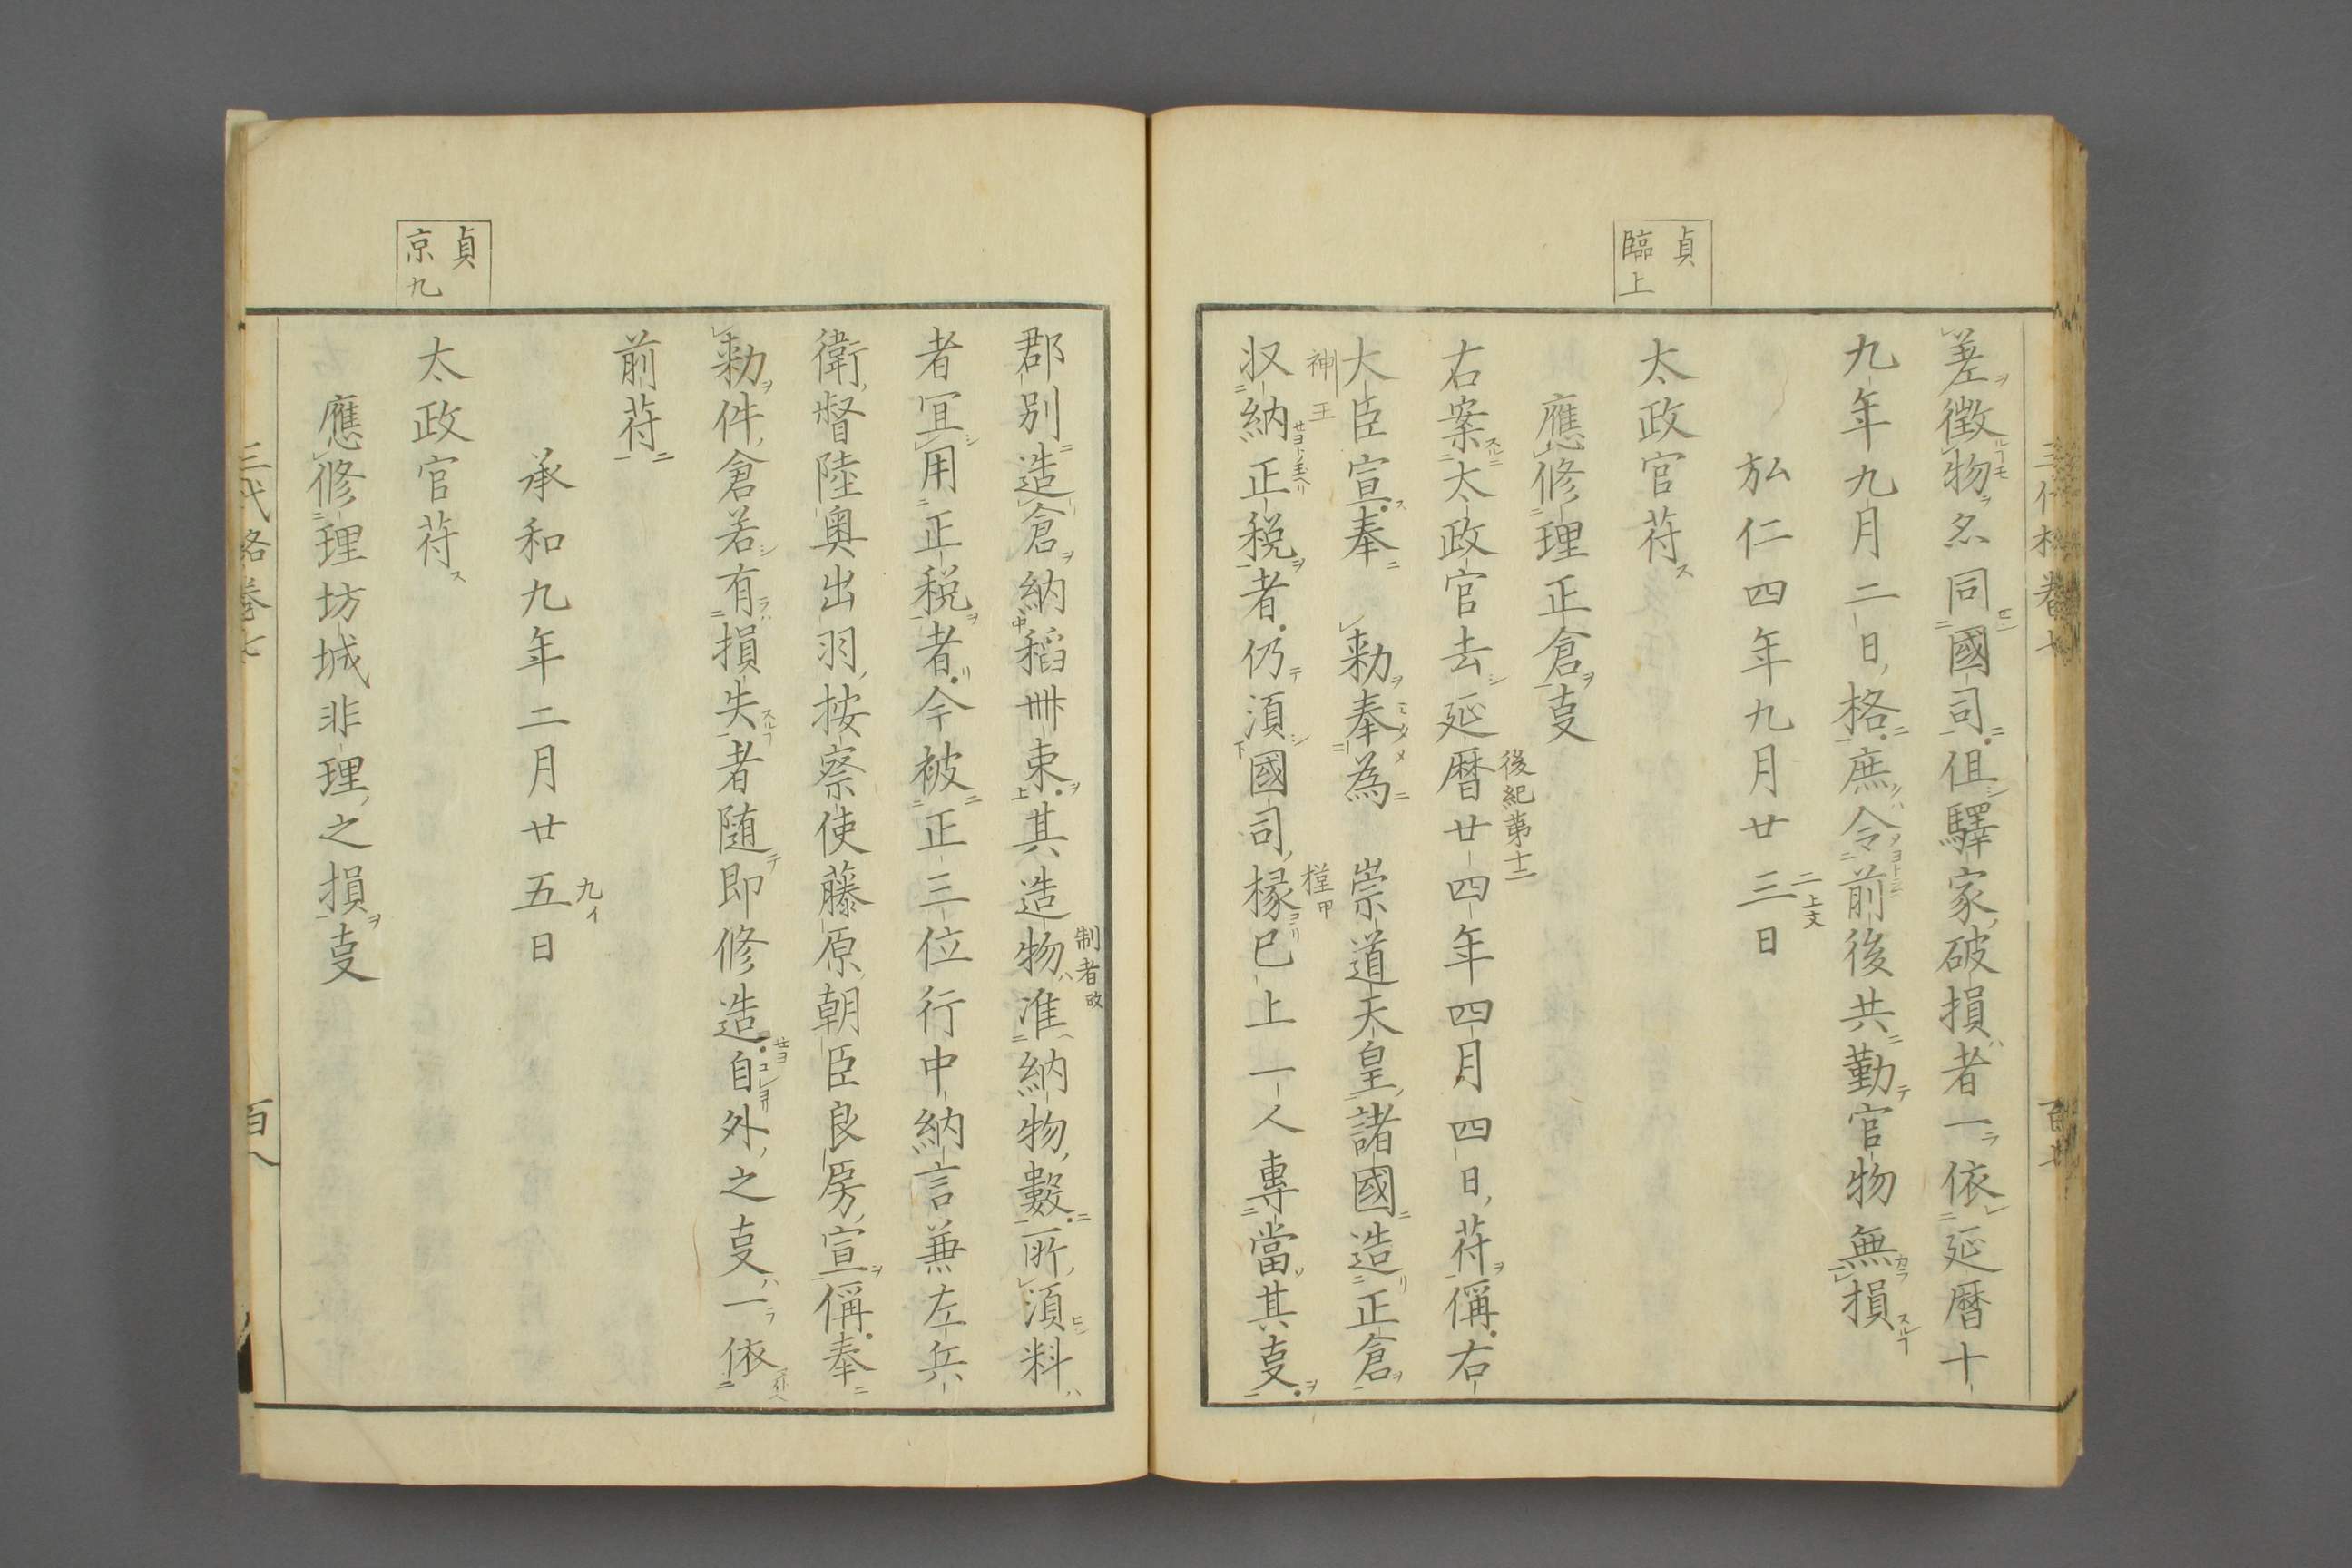 貞
臨上
差徴物名同國司但驛家破損者一依延曆十
九年九月二日格庶令前後共勤官物無損
弘仁四年九月廿三日
二上文
太政官苻
應修理正倉叓
右案太政官去延曆廿四年四月四日苻偁右
後紀第十二
大臣宣奉 勅奉為 崇道天皇諸國造正倉
神王
収納正税者仍湏國司椽已上一人專當其叓
郡別造倉納稻卌束其造物准納物數所湏料
制者改
者冝用正税者今被正三位行中納言兼左兵
衛督陸奧出羽按察使藤原朝臣良房宣偁奉
勅件倉若有損失者随即修造自外之叓一依
前苻
承和九年二月廿五日
九イ
貞
京九
太政官苻
應修理坊城非理之損叓
三代格卷七
百八